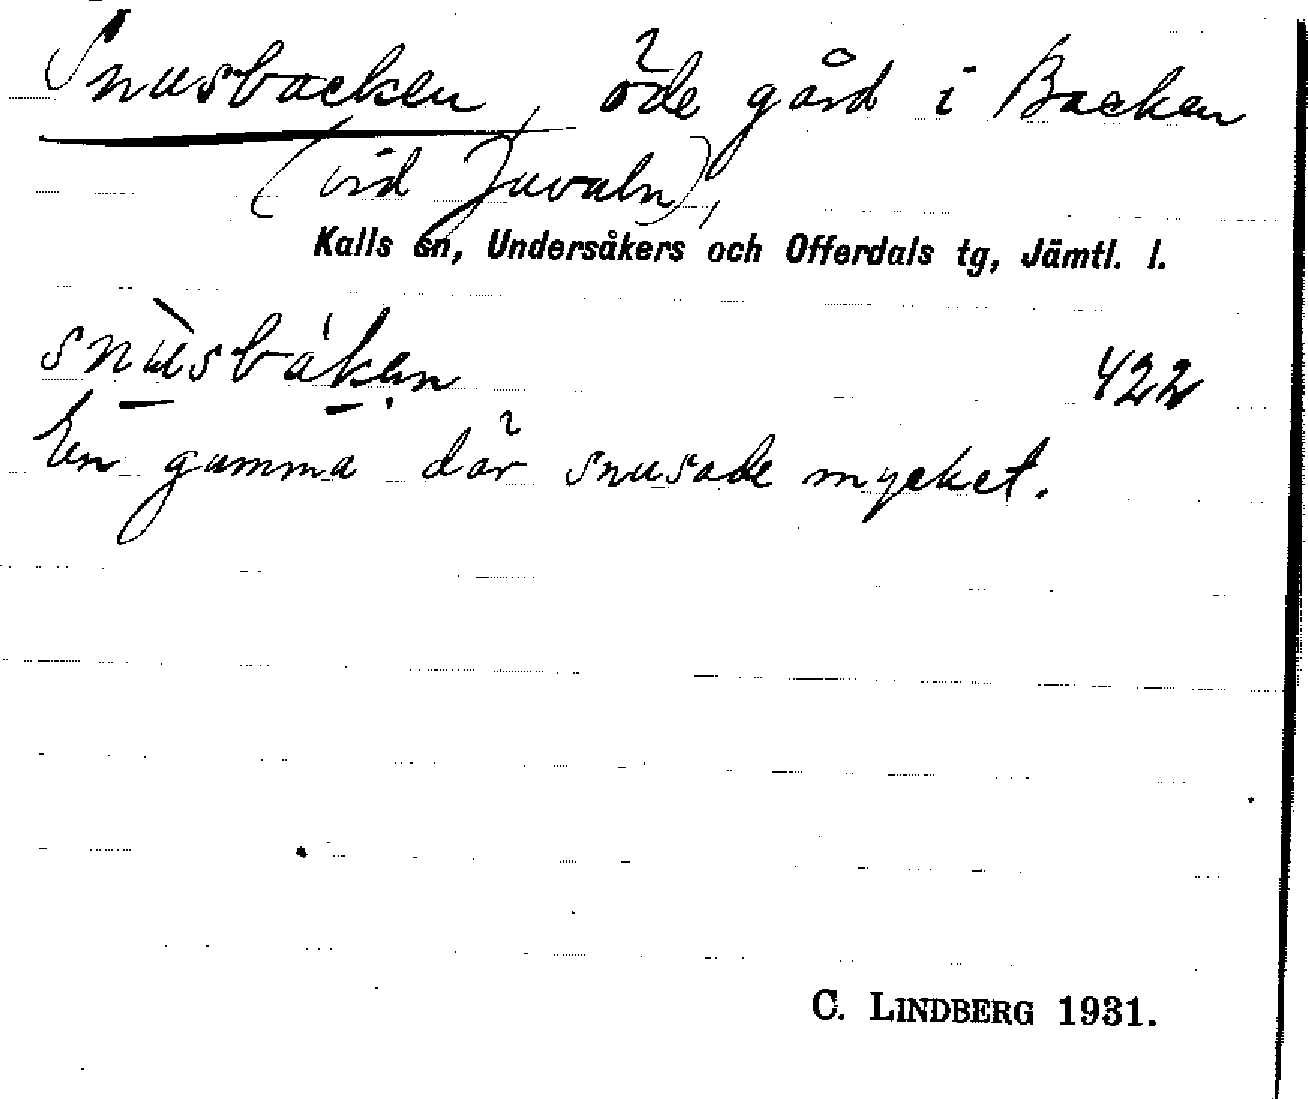 Snusbacken, öde gård i Backen
(vid Juvuln),
Kalls sn, Undersåkers och Offerdals tg, Jämtl. l.
snùsbáken 422
En gumma där snusade mycket.
C. LINDBERG 1931.